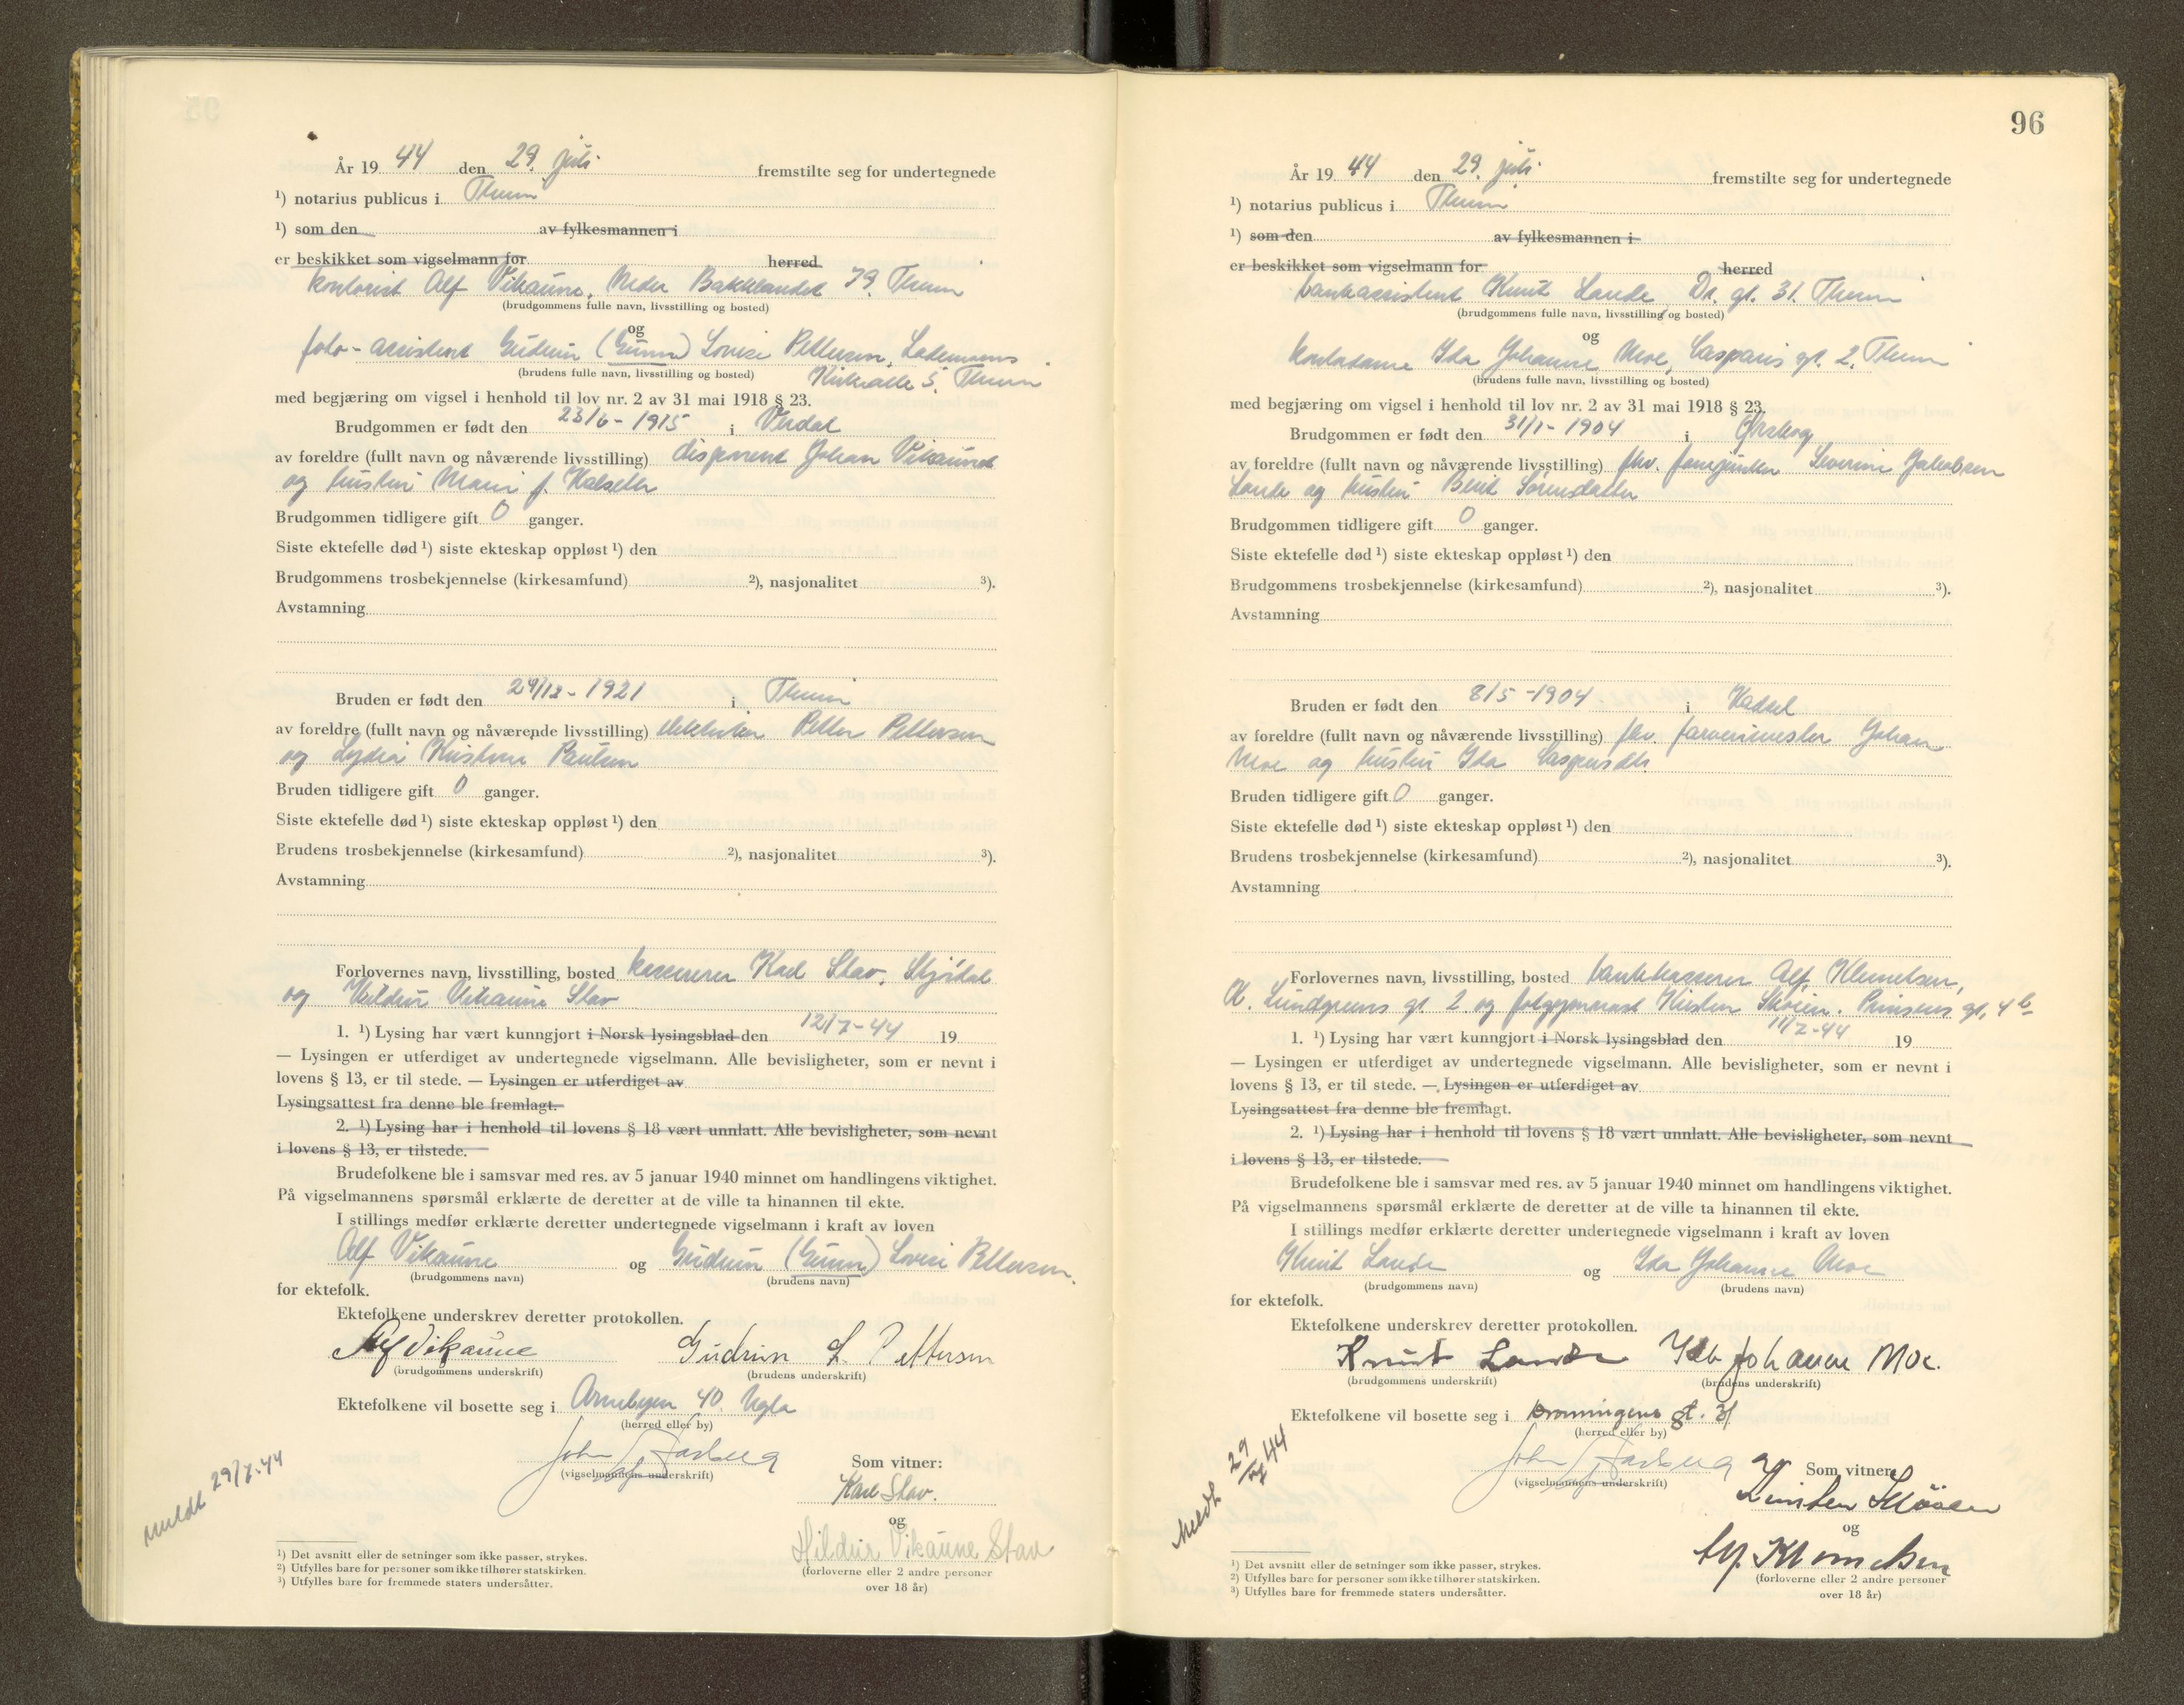 År 19 44 den 29. juli fremstilte seg for undertegnede
¹) notarius publicus i Thum
¹) som den av fylkesmannen i
er beskikket som vigselmann for herred
kontorist Alf Vikaune, Nedre Bakklandet 79. Thum
(brudgommens fulle navn, livsstilling og bosted)
og
foto-assistent Gudrun (Gunn) Lovise Pettersen, Lademoens
Kirkealle 5. Thum
(brudens fulle navn, livsstilling og bosted)
med begjæring om vigsel i henhold til lov nr. 2 av 31 mai 1918 § 23.
Brudgommen er født den 23/6 - 1915 i Verdal
av foreldre (fullt navn og nåværende livsstilling) disponent Johan Vikaune
og hustru Marie f. Halseth
Brudgommen tidligere gift 0 ganger.
Siste ektefelle død ¹) siste ekteskap oppløst ¹) den
Brudgommens trosbekjennelse (kirkesamfund) ²), nasjonalitet ³).
Avstamning
Bruden er født den 29/12 - 1921 i Thum
av foreldre (fullt navn og nåværende livsstilling) Petter Pettersen
og Lydia Kristine Paulsen
Bruden tidligere gift 0 ganger.
Siste ektefelle død ¹) siste ekteskap oppløst ¹) den
Brudens trosbekjennelse (kirkesamfund) ²), nasjonalitet ³).
Avstamning
Forlovernes navn, livsstilling, bosted kasserer Karl Stav, Stjørdal
og Hildur Vikaune Stav
1. ¹) Lysing har vært kunngjort i Norsk lysingsblad den 12/7-44 19
— Lysingen er utferdiget av undertegnede vigselmann. Alle bevisligheter, som er nevnt i
lovens § 13, er til stede. — Lysingen er utferdiget av
Lysingsattest fra denne ble fremlagt.
2. ¹) Lysing har i henhold til lovens § 18 vært unnlatt. Alle bevisligheter, som nevnt
i lovens § 13, er tilstede.
Brudefolkene ble i samsvar med res. av 5 januar 1940 minnet om handlingens viktighet.
På vigselmannens spørsmål erklærte de deretter at de ville ta hinannen til ekte.
I stillings medfør erklærte deretter undertegnede vigselmann i kraft av loven
Alf Vikaune og Gudrun (Gunn) Lovise Pettersen.
(brudgommens navn) (brudens navn)
for ektefolk.
Ektefolkene underskrev deretter protokollen.
Alf Vikaune Gudrun L. Pettersen
(brudgommens underskrift) (brudens underskrift)
Ektefolkene vil bosette seg i Arnebyen 40. Ugla
(herred eller by)
(vigselmannens underskrift)
Som vitner:
Karl Stav.
og
Hildur Vikaune Stav
(forloverne eller 2 andre personer
over 18 år)
meldt 29/7-44
¹) Det avsnitt eller de setninger som ikke passer, strykes.
²) Utfylles bare for personer som ikke tilhører statskirken.
³) Utfylles bare for fremmede staters undersåtter.
96
År 19 44 den 29. juli fremstilte seg for undertegnede
¹) notarius publicus i Thum
¹) som den av fylkesmannen i
er beskikket som vigselmann for herred
bankassistent Knut Lande, Dr. gt. 31. Thum
(brudgommens fulle navn, livsstilling og bosted)
og
kontordame Ida Johanne Moe, Casparis gt. 2. Thum
(brudens fulle navn, livsstilling og bosted)
med begjæring om vigsel i henhold til lov nr. 2 av 31 mai 1918 § 23.
Brudgommen er født den 31/1 - 1904 i Ørskog
av foreldre (fullt navn og nåværende livsstilling) fhv. Severin Jakobsen
Lande og hustru Berit Sørensdatter
Brudgommen tidligere gift 0 ganger.
Siste ektefelle død ¹) siste ekteskap oppløst ¹) den
Brudgommens trosbekjennelse (kirkesamfund) ²), nasjonalitet ³).
Avstamning
Bruden er født den 8/5 - 1904 i Hadsel
av foreldre (fullt navn og nåværende livsstilling) fhv. farverimester Johan
Moe og hustru Ida Caspersdtr.
Bruden tidligere gift 0 ganger.
Siste ektefelle død ¹) siste ekteskap oppløst ¹) den
Brudens trosbekjennelse (kirkesamfund) ²), nasjonalitet ³).
Avstamning
Forlovernes navn, livsstilling, bosted bankkasserer Alf Klemetsen,
Lundgrens gt. 2 og Kirsten Skøien. Prinsens gt. 4b
1. ¹) Lysing har vært kunngjort i Norsk lysingsblad den 11/7-44 19
— Lysingen er utferdiget av undertegnede vigselmann. Alle bevisligheter, som er nevnt i
lovens § 13, er til stede. — Lysingen er utferdiget av
Lysingsattest fra denne ble fremlagt.
2. ¹) Lysing har i henhold til lovens § 18 vært unnlatt. Alle bevisligheter, som nevnt
i lovens § 13, er tilstede.
Brudefolkene ble i samsvar med res. av 5 januar 1940 minnet om handlingens viktighet.
På vigselmannens spørsmål erklærte de deretter at de ville ta hinannen til ekte.
I stillings medfør erklærte deretter undertegnede vigselmann i kraft av loven
Knut Lande og Ida Johanne Moe
(brudgommens navn) (brudens navn)
for ektefolk.
Ektefolkene underskrev deretter protokollen.
Knut Lande Ida Johanne Moe.
(brudgommens underskrift) (brudens underskrift)
Ektefolkene vil bosette seg i Dronningens gt. 31
(herred eller by)
(vigselmannens underskrift)
Som vitner:
Kirsten Skøien
og
Alf Klemetsen
(forloverne eller 2 andre personer
over 18 år)
Meldt 29/7 44
¹) Det avsnitt eller de setninger som ikke passer, strykes.
²) Utfylles bare for personer som ikke tilhører statskirken.
³) Utfylles bare for fremmede staters undersåtter.